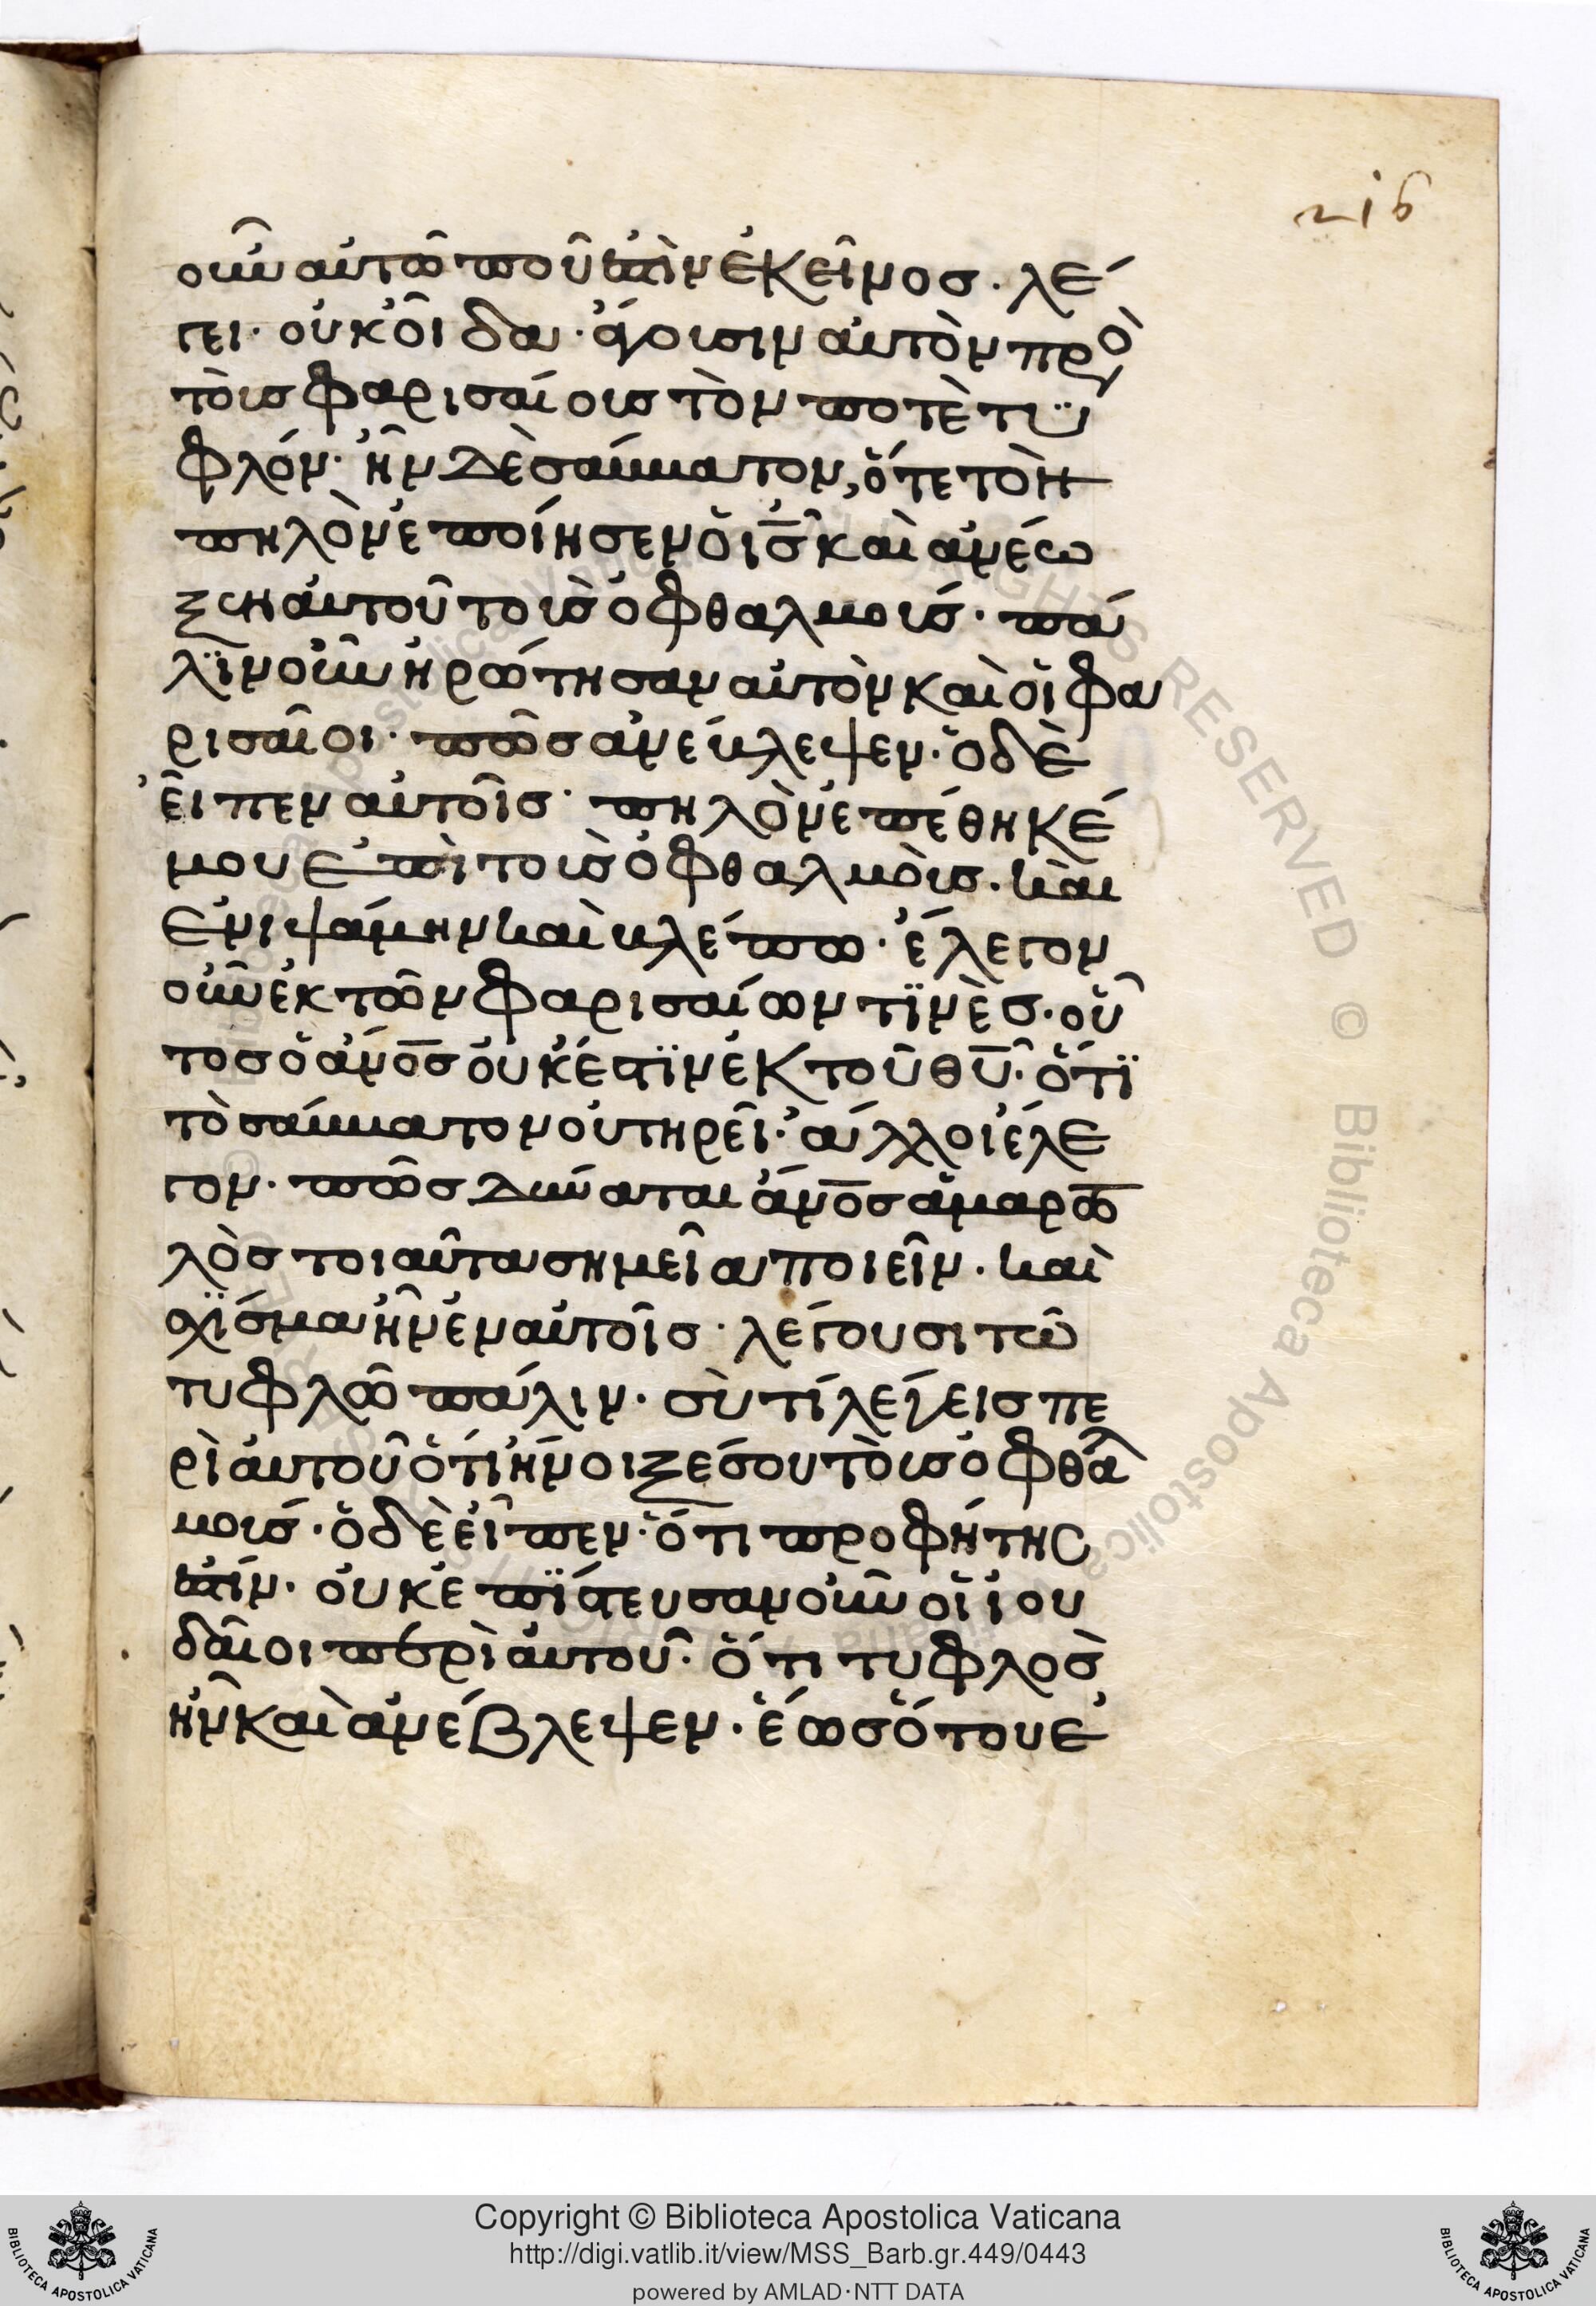 216
οὖν αὐτῶ ποῦ ἐστὶν ἐκεῖνος · λέ
γει · οὐκ οἶδα · ἄγουσιν αὐτὸν πρὸ
τοὺς φαρισαίους τὸν ποτὲ τϋ
φλόν · ἦν δὲ σάββατον, ὅτε τὸν
πηλὸν ἐποίησεν ὁ ι̅ς̅ καὶ ἀνέω
ξεν αὐτοῦ τοὺς ὀφθαλμούς · πά
λϊν οὖν ἠρώτησαν αὐτὸν καὶ οἱ φα
ρισαῖοι · πῶς ἀνέβλεψεν · ὁ δὲ
εἶπεν αὐτοῖς · πηλὸν ἐπέθηκέ
μου ἐπὶ τοὺς ὀφθαλμοὺς · καὶ
ἐνιψάμην καὶ βλέπω · ἔλεγον
οὖν ἐκ τῶν φαρισαίων τϊνὲς · οὗ
τος ὁ ἄν̅ο̅ς̅ οὐκ ἔστϊν ἐκ τοῦ θ̅υ̅ · ὅτϊ
τὸ σάββατον οὐ τηρεῖ · ἄλλοι ἔλε
γον · πῶς δύναται ἄν̅ο̅ς̅ ἁμαρτω
λὸς τοιαῦτα σημεῖα ποιεῖν · καὶ
σχϊσμα ἦν ἐν αὐτοῖς · λέγουσι τῶ
τυφλῶ πάλιν · σὺ τί λέγεις πε
ρὶ αὐτοῦ ὅτι ἤνοιξέ σου τοὺς ὀφθαλ
μούς · ὁ δὲ εἶπεν · ὅτι προφήτης
ἐστίν · οὐκ ἐπϊστευσαν οὖν οἱ ἰου
δαῖοι περὶ αὐτοῦ · ὅτι τυφλὸς
ἦν καὶ ἀνέβλεψεν · ἕως ὅτου ἐ
Copyright © Biblioteca Apostolica Vaticana
http://digi.vatlib.it/view/MSS_Barb.gr.449/0443
powered by AMLAD·NTT DATA